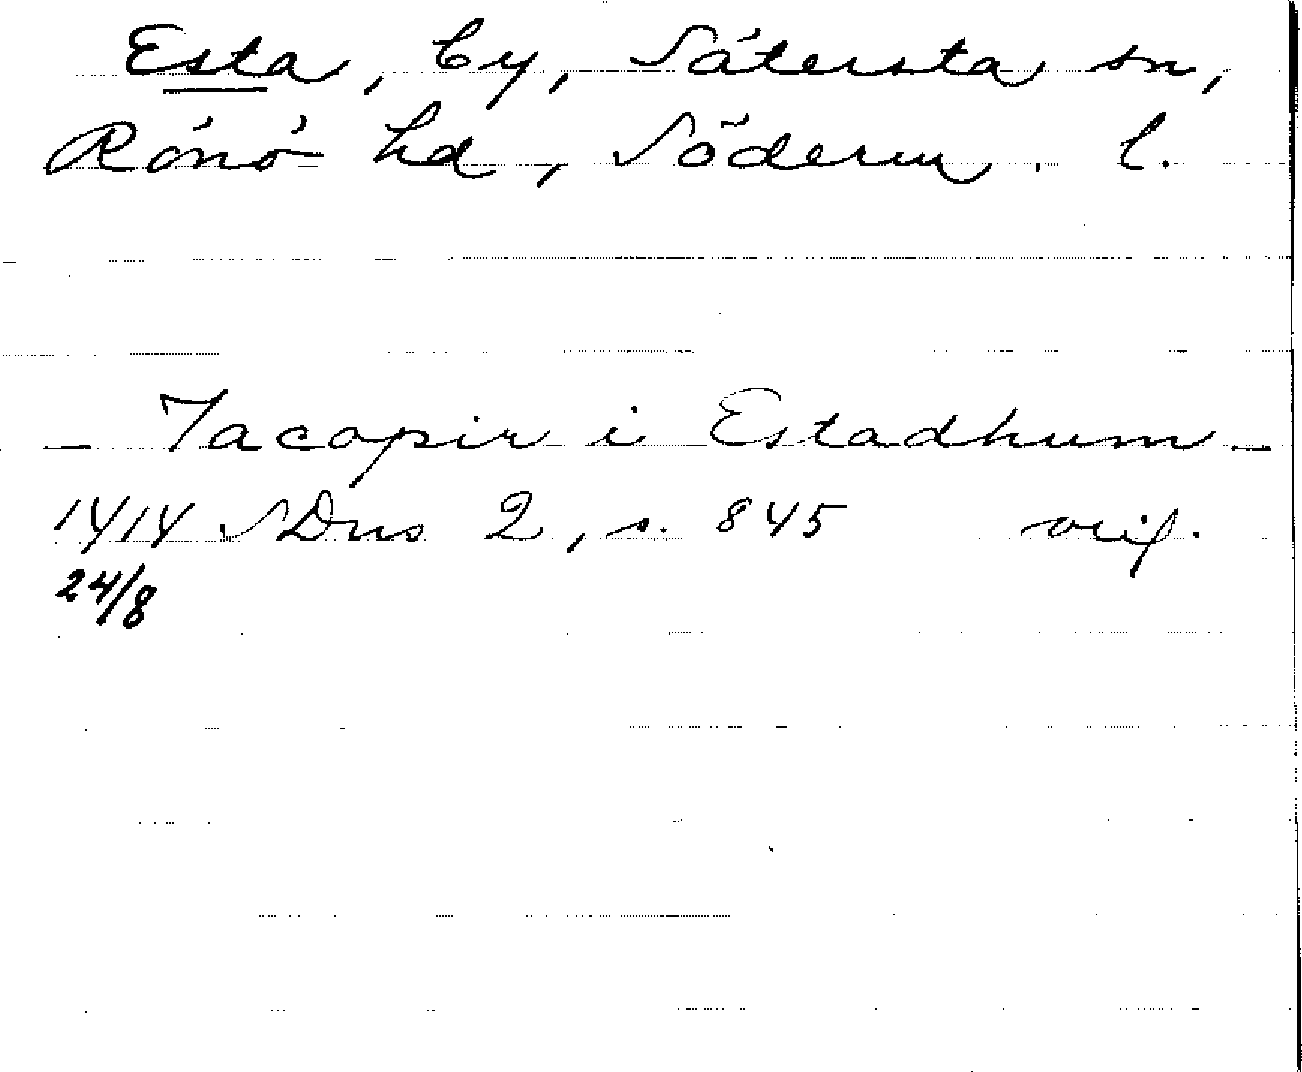 Esta, by, Sätersta sn,
Rönö hd, Söderm. l.
– Jacopir i Estadhum –
1414 SDns 2, s. 845 orig.
24/8